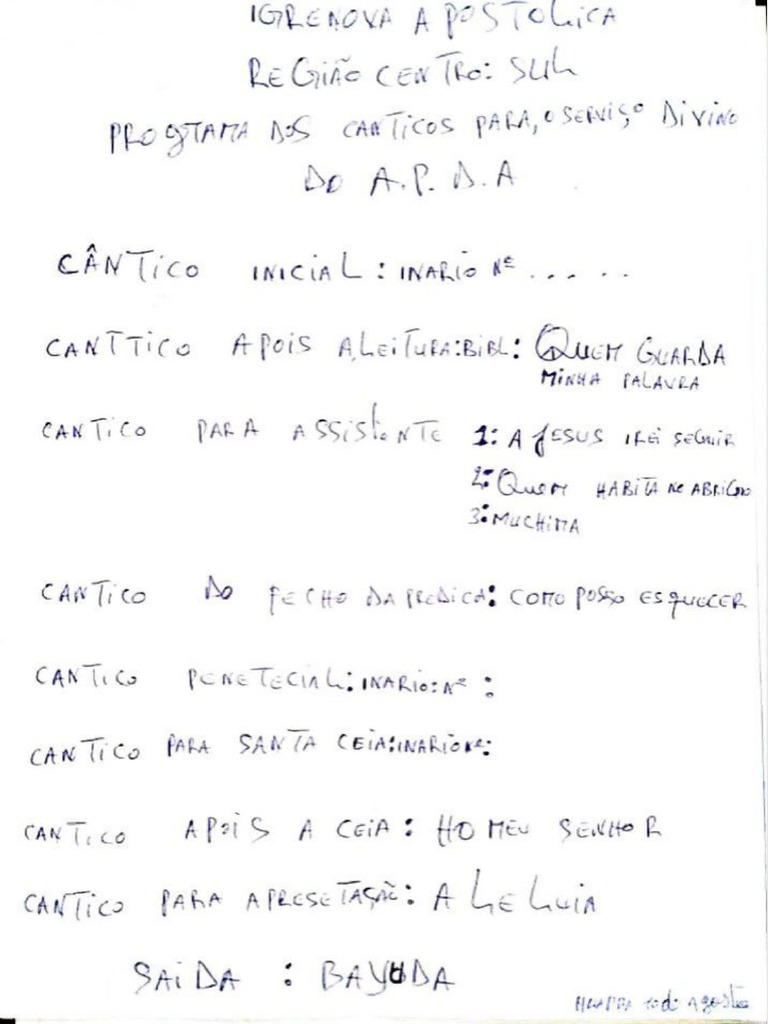 IGRENOVA APOSTOLICA
REGIÃO CENTRO: SUL
PROGTAMA DOS CANTICOS PARA, O SERVIÇO DIVINO
DO A.P.D.A
CÂNTICO INICIAL: INARIO Nº .....
CANTTICO APOIS A LEITURA:BIBL: QUEM GUARDA
MINHA PALAVRA
CANTICO PARA ASSISTENTE 1: A JESUS IREI SEGUIR
2: QUEM HABITA NO ABRIGO
3: MUCHIMA
CANTICO DO FECHO DA PREDICA: COMO POSSO ESQUECER
CANTICO PENETECIAL: INARIO: Nº :
CANTICO PARA SANTA CEIA: INARIO Nº:
CANTICO APOIS A CEIA: HO MEU SENHOR
CANTICO PARA APRESETAÇÃO: ALELUIA
SAIDA : BAYUDA
de Agosto